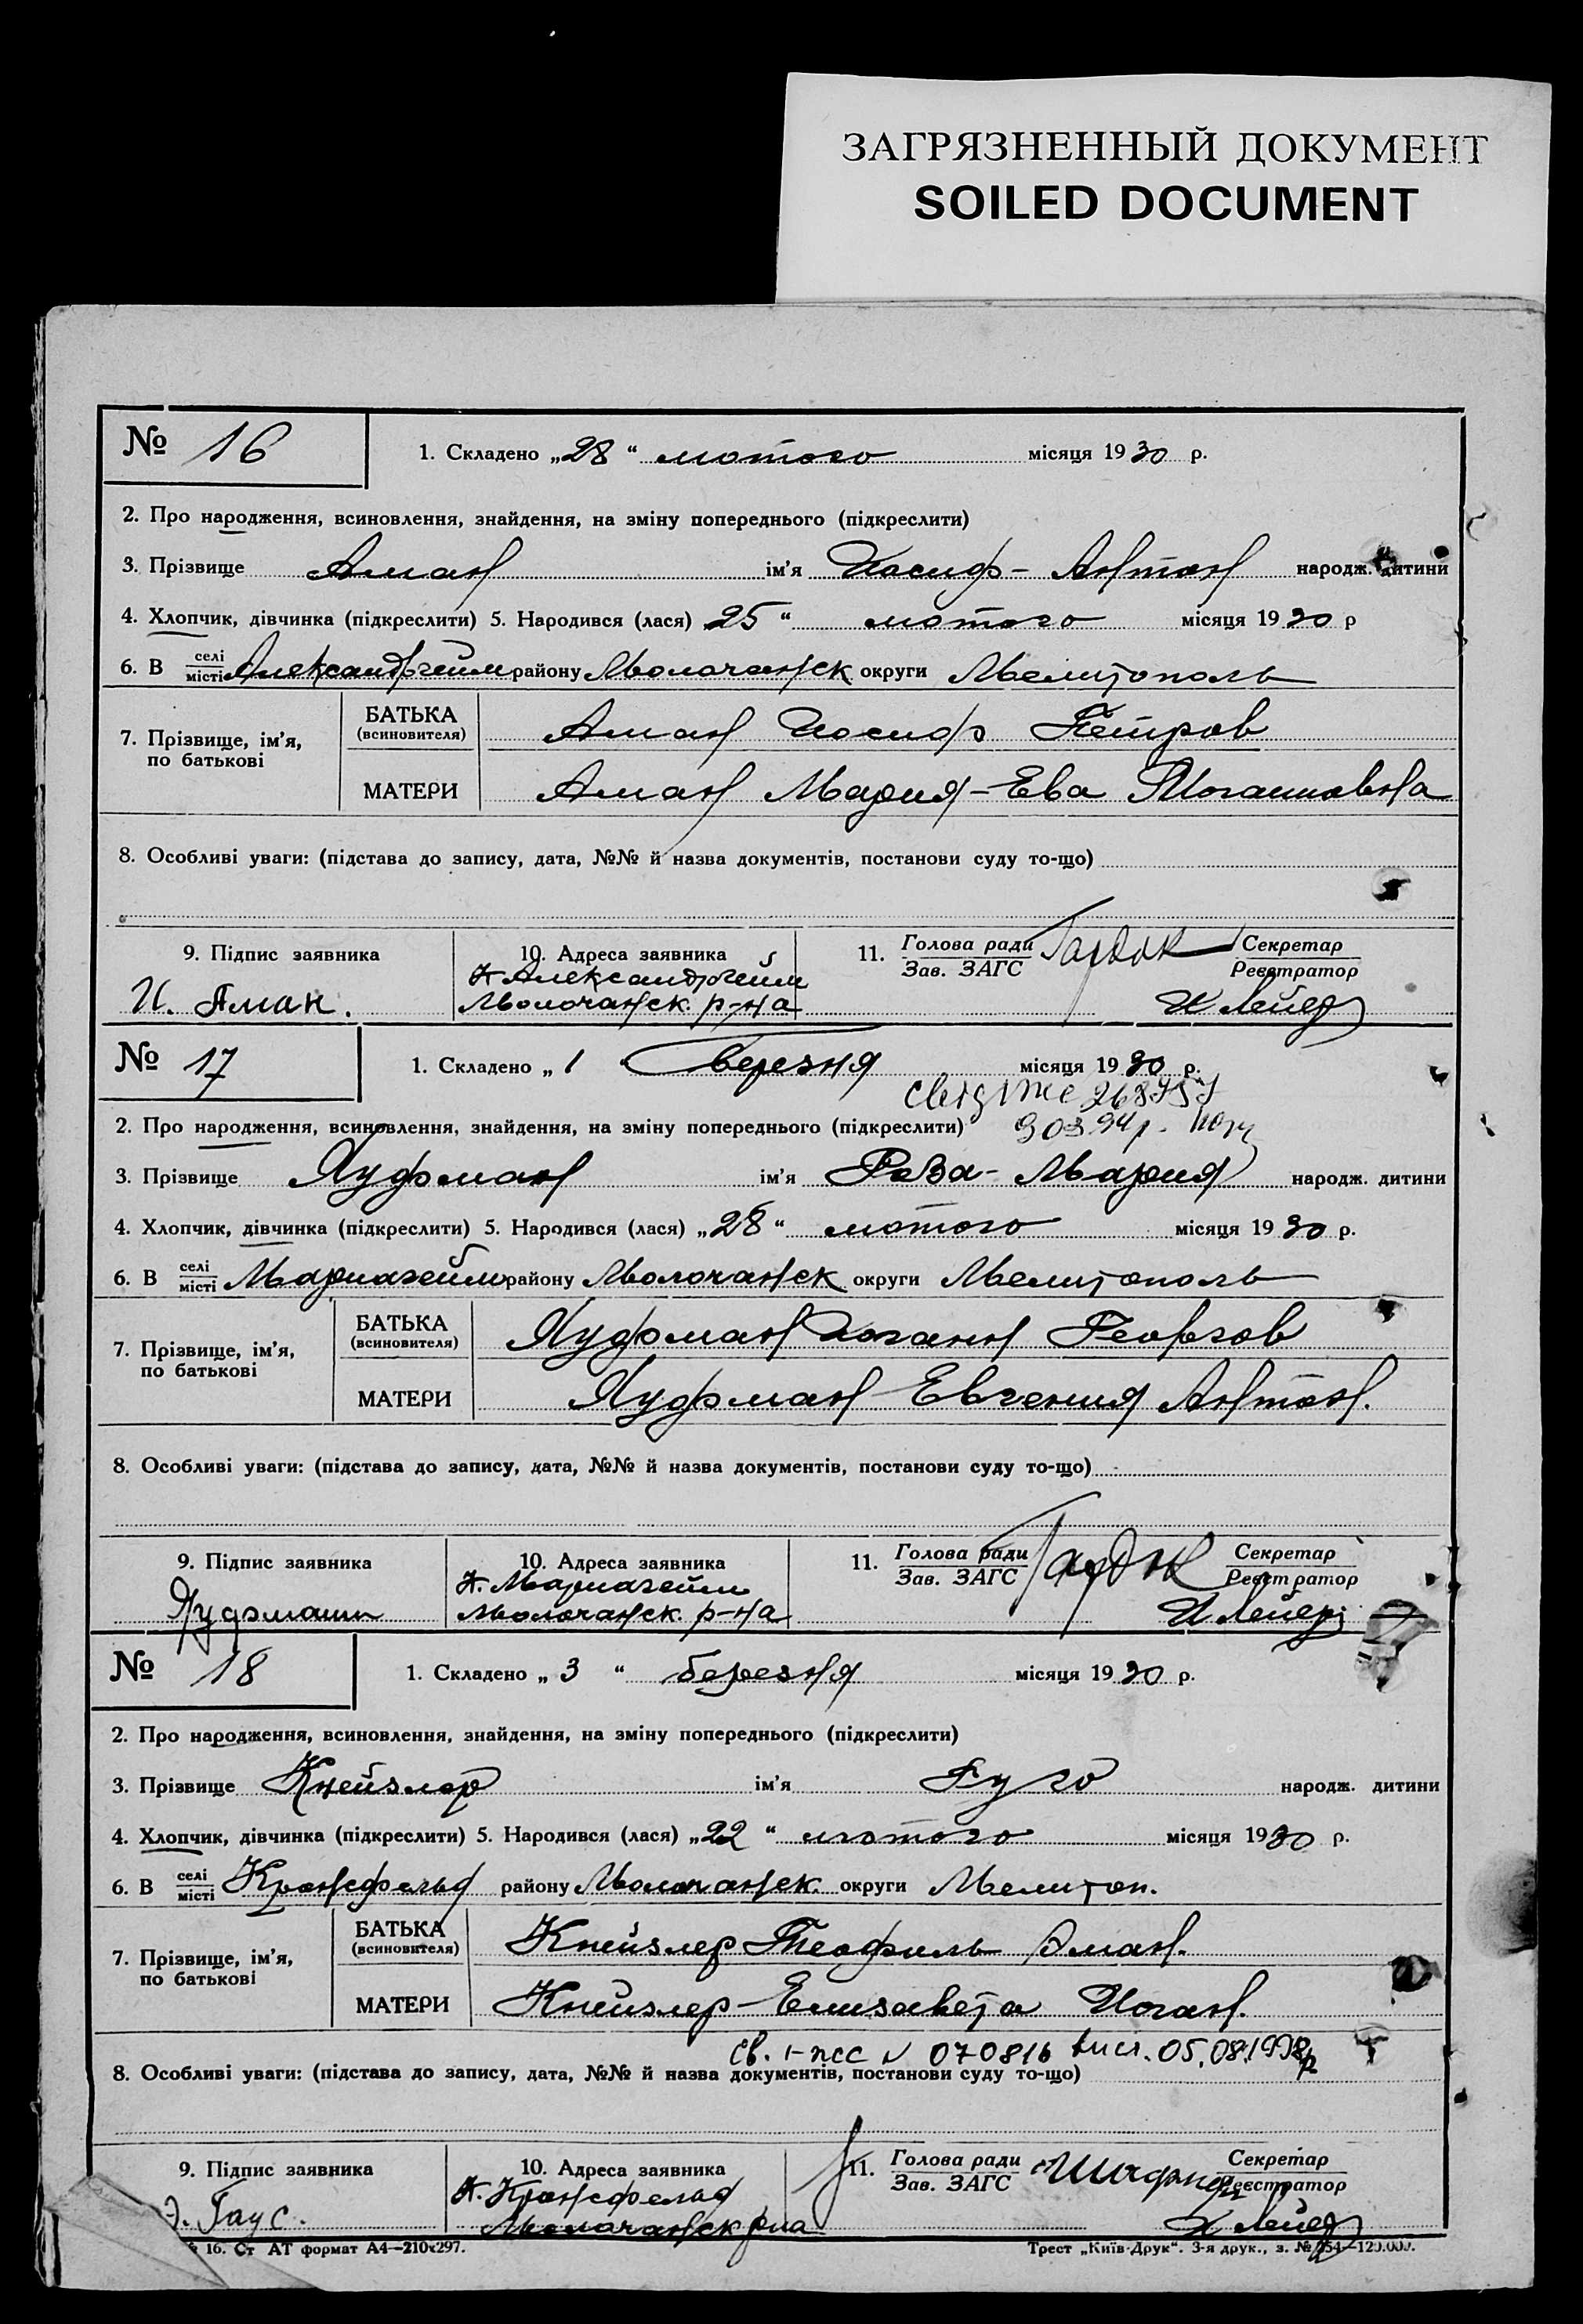 ЗАГРЯЗНЕННЫЙ ДОКУМЕНТ
SOILED DOCUMENT
№ 16
1. Складено „28“ лютого місяця 1930 р.
2. Про народження, всиновлення, знайдення, на зміну попереднього (підкреслити)
3. Прізвище Аман ім'я Иосиф-Антон народж. дитини
4. Хлопчик, дівчинка (підкреслити) 5. Народився (лася) 25“ лютого місяця 1930 р
6. В селі місті Александргейм району Молочанск округи Мелитополь
7. Прізвище, ім'я, по батькові
БАТЬКА (всиновителя) Аман Иосиф Петров
МАТЕРИ Аман Мария-Ева
8. Особливі уваги: (підстава до запису, дата, №№ й назва документів, постанови суду то-що)
9. Підпис заявника
10. Адреса заявника
11. Голова ради Зав. ЗАГС
Секретар Реєстратор
И. Аман.
к Александргейм
Молочанск. р-на
№ 17
1. Складено „1“ березня місяця 1930 р.
2. Про народження, всиновлення, знайдення, на зміну попереднього (підкреслити)
3. Прізвище Яуфман ім'я Роза-Мария народж. дитини
4. Хлопчик, дівчинка (підкреслити) 5. Народився (лася) „28“ лютого місяця 1930 р.
6. В селі місті Мариагейм району Молочанск округи Мелитополь
7. Прізвище, ім'я, по батькові
БАТЬКА (всиновителя) Яуфман Иоганн Георгов
МАТЕРИ Яуфман Евгения Антон.
8. Особливі уваги: (підстава до запису, дата, №№ й назва документів, постанови суду то-що)
9. Підпис заявника
10. Адреса заявника
11. Голова ради Зав. ЗАГС
Секретар Реєстратор
Яуфманн
к. Мариагейм
Молочанск. р-на
№ 18
1. Складено „3“ березня місяця 1930 р.
2. Про народження, всиновлення, знайдення, на зміну попереднього (підкреслити)
3. Прізвище Кнейзлер ім'я Гуго народж. дитини
4. Хлопчик, дівчинка (підкреслити) 5. Народився (лася) „22“ лютого місяця 1930 р.
6. В селі місті Кронсфельд району Молочанск. округи Мелитоп.
7. Прізвище, ім'я, по батькові
БАТЬКА (всиновителя) Кнейзлер Теофиль Эман.
МАТЕРИ Кнейзлер Елизавета Иоган.
св. I-ЖС N 070816 05.08.1998р
8. Особливі уваги: (підстава до запису, дата, №№ й назва документів, постанови суду то-що)
9. Підпис заявника
10. Адреса заявника
11. Голова ради Зав. ЗАГС
Секретар Реєстратор
Гаус.
к. Кронсфельд
Молочанск рна
16. Ст АТ формат А4—210х297.
Трест „Київ-Друк“. 3-я друк., з.